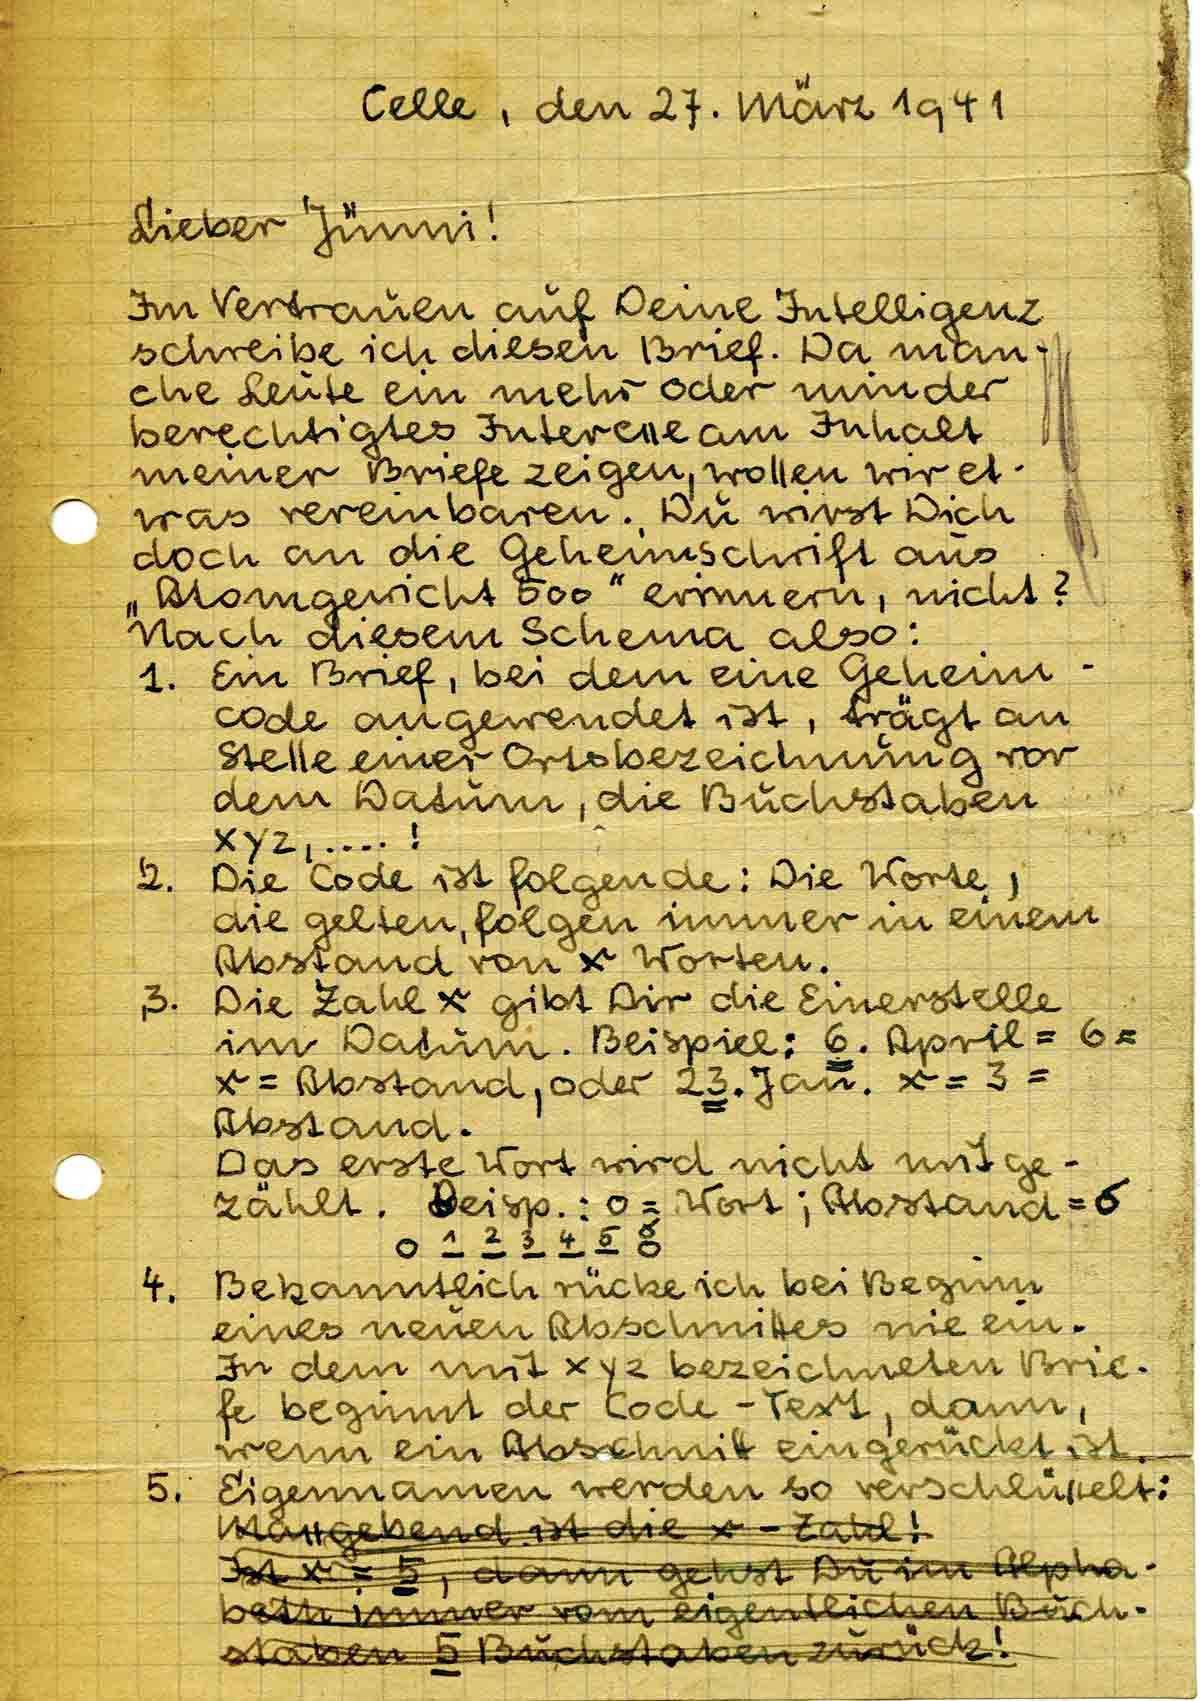 Celle, den 27. März 1941
Lieber Jünni!
Im Vertrauen auf Deine Intelligenz
schreibe ich diesen Brief. Da man-
che Leute ein mehr oder minder
berechtigtes Interesse am Inhalt
meiner Briefe zeigen, wollen wir et-
was vereinbaren. Du wirst Dich
doch an die Geheimschrift aus
„Atomgewicht 500“ erinnern, nicht?
Nach diesem Schema also:
1. Ein Brief, bei dem eine Geheim-
code angewendet ist, trägt an
Stelle einer Ortsbezeichnung vor
dem Datum, die Buchstaben
xyz, .... !
2. Die Code ist folgende: Die Worte,
die gelten, folgen immer in einem
Abstand von x Worten.
3. Die Zahl x gibt Dir die Einerstelle
im Datum. Beispiel: 6. April = 6 =
x = Abstand, oder 23. Jan. x = 3 =
Abstand.
Das erste Wort wird nicht mitge-
zählt. Beisp.: o = Wort; Abstand = 6
o 1 2 3 4 5 6 o
4. Bekanntlich rücke ich bei Beginn
eines neuen Abschnittes nie ein.
In dem mit xyz bezeichneten Brie-
fe beginnt der Code-Text, dann,
wenn ein Abschnitt eingerückt ist.
5. Eigennamen werden so verschlüsselt:
Maßgebend ist die x-Zahl!
Ist x = 5, dann gehst Du im Alpha-
beth immer vom eigentlichen Buch-
staben 5 Buchstaben zurück!